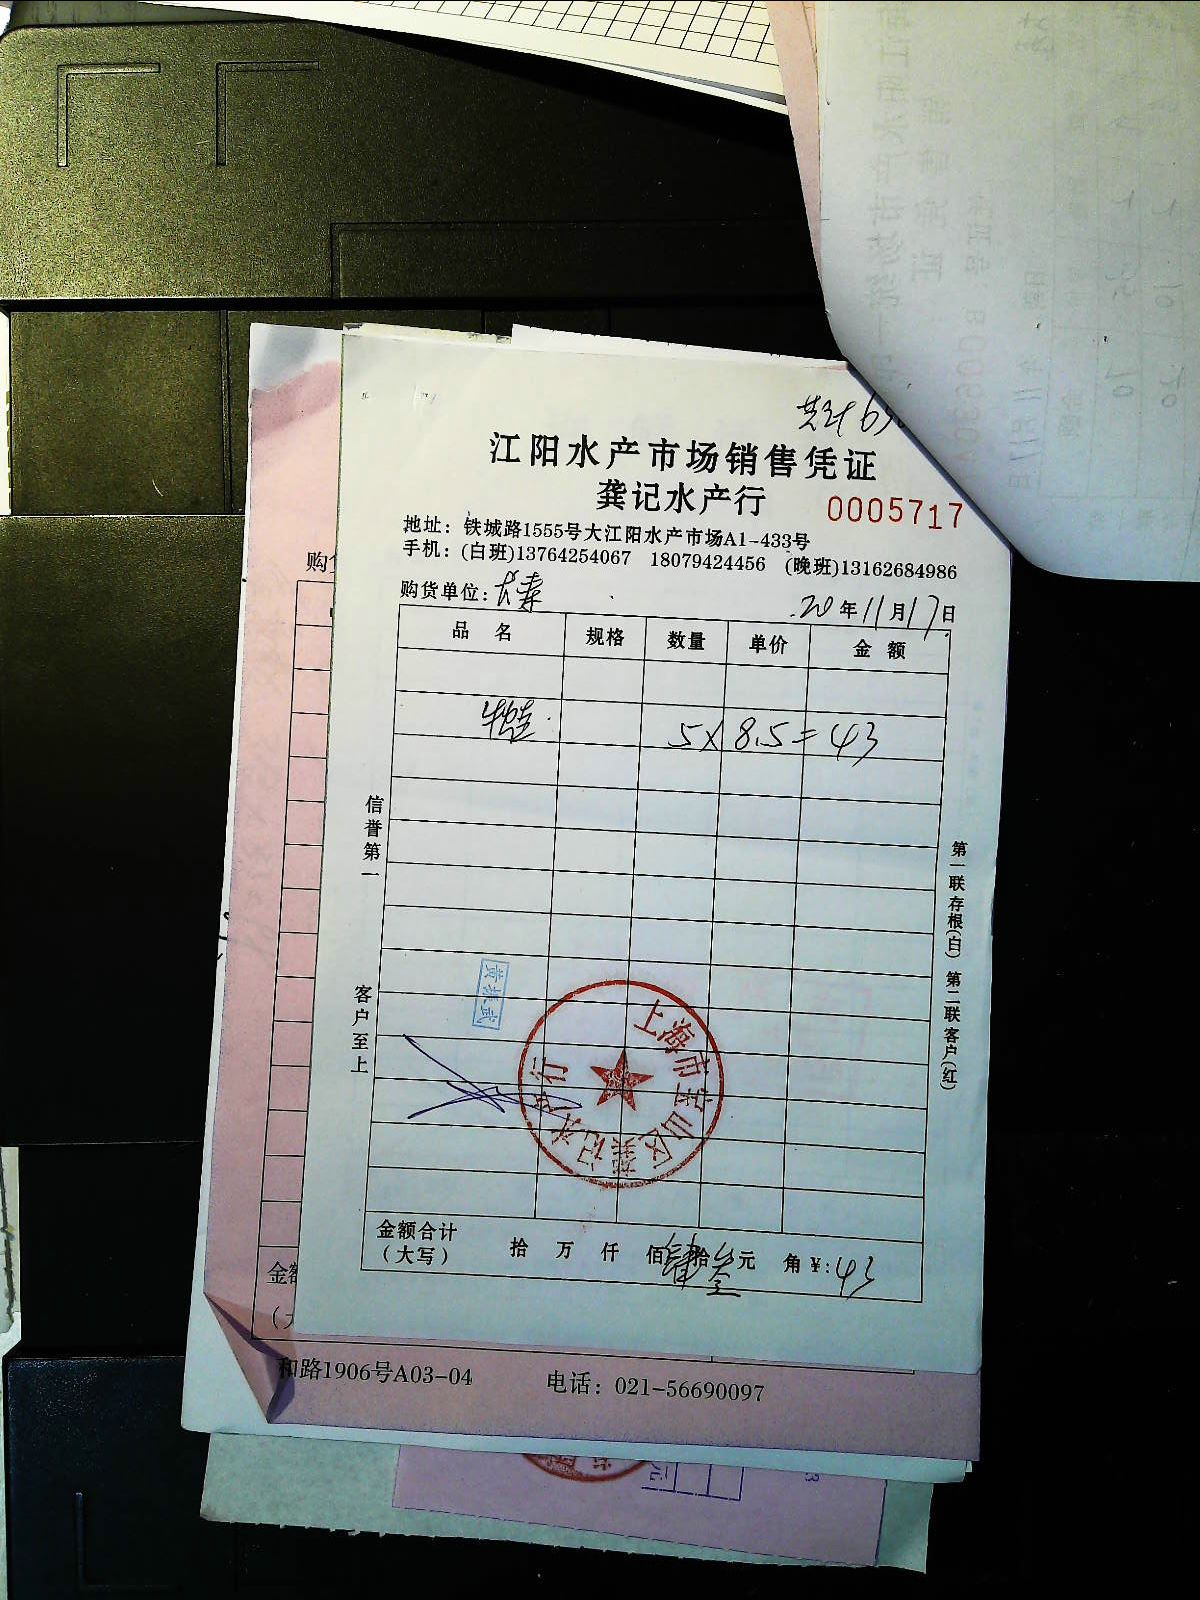 江阳水产市场销售凭证
龚记水产行 0005717
地址：铁城路1555号大江阳水产市场A1-433号
手机：(白班)13764254067 18079424456 (晚班)13162684986
购货单位：长寿 20年11月17日
品名 规格 数量 单价 金额
牛蛙 5×8.5=43
信誉第一
客户至上
第一联存根(白) 第二联客户(红)
黄振武
上海市宝山区龚记水产行
金额合计
(大写) 拾 万 仟 佰肆拾叁元 角 ¥:43
和路1906号A03-04 电话：021-56690097